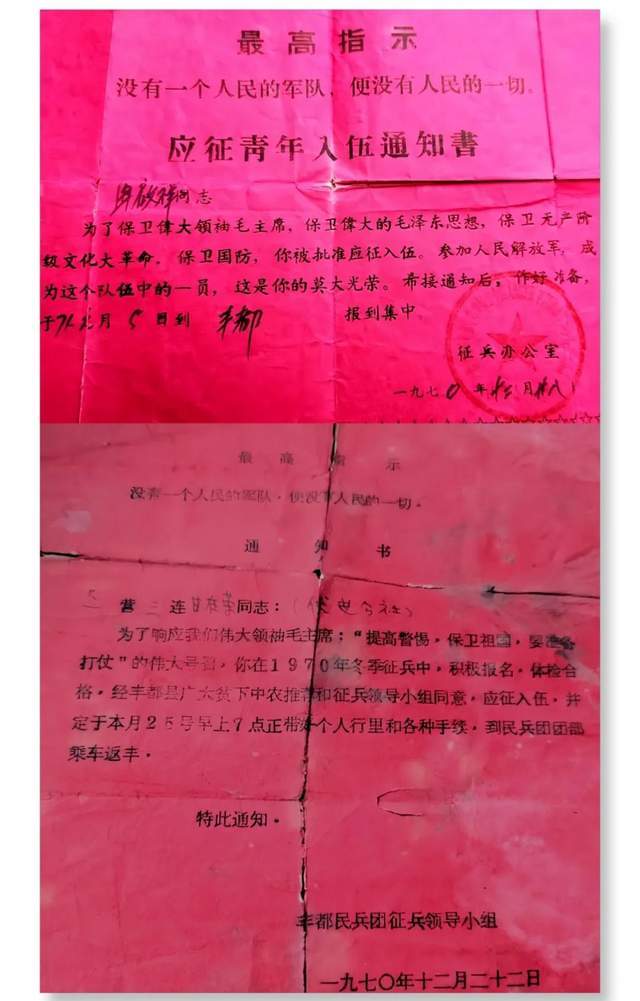 最高指示
没有一个人民的军队，便没有人民的一切。
应征青年入伍通知書
同志
为了保卫偉大领袖毛主席，保卫偉大的毛泽东思想，保卫无产阶
级文化大革命，保卫国防，你被批准应征入伍。参加人民解放军，成
为这个队伍中的一员，这是你的莫大光荣。希接通知后，作好准备，
于71年 月5日到 丰都 报到集中。
征兵办公室
一九七0年十二月廿八
最高指示
没有一个人民的军队，便没有人民的一切。
通知书
营三连 同志：
为了响应我们伟大领袖毛主席：“提高警惕，保卫祖国，要准备
打仗”的伟大号召，你在1970年冬季征兵中，积极报名，体检合
格，经丰都县广大贫下中农推荐和征兵领导小组同意，应征入伍，并
定于本月25号早上7点正带好个人行里和各种手续，到民兵团团部
乘车返丰．
特此通知。
丰都民兵团征兵领导小组
一九七〇年十二月二十二日